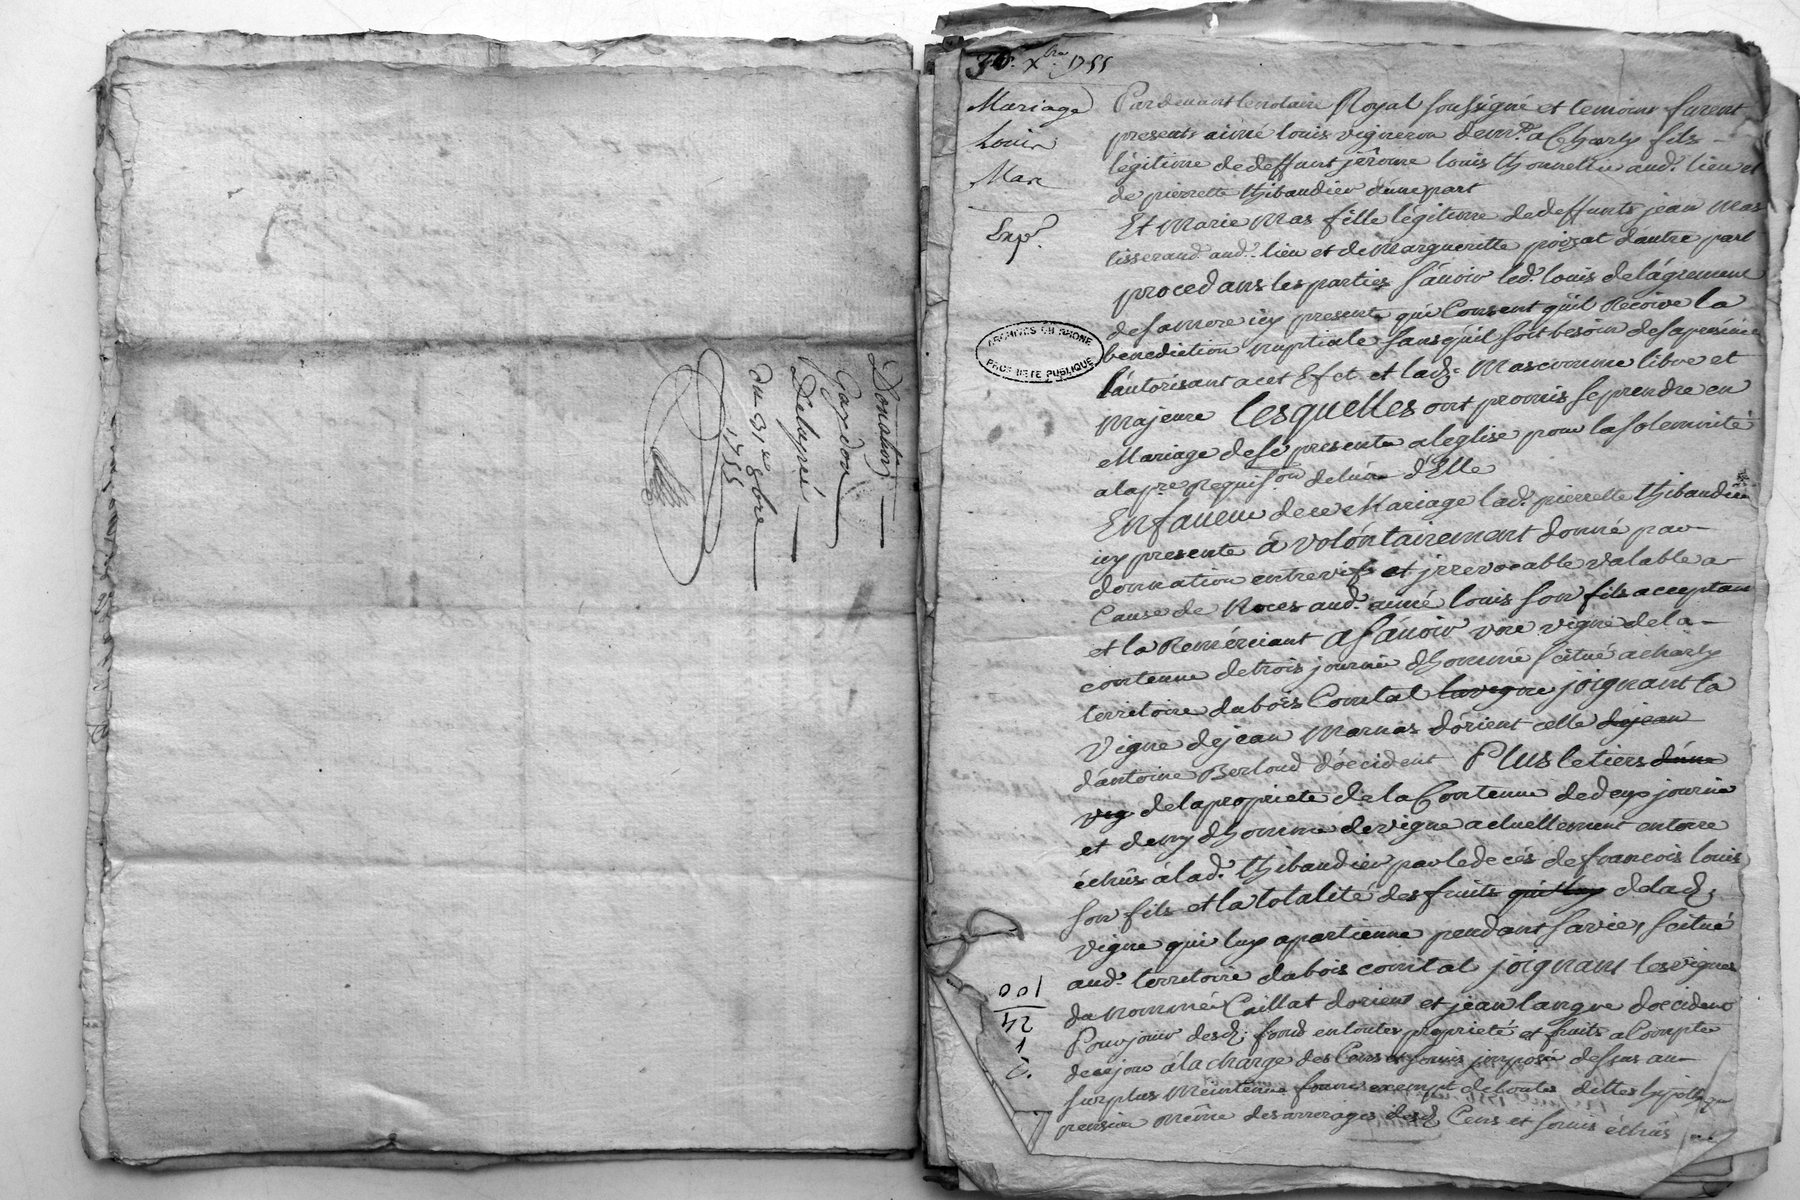 Donation
Gaydon
Delaprié
du 31e 8bre
1755
30e Xbre 1755
Mariage
Louis
Mas
Exp.
ARCHIVES DU RHONE
PROPRIETE PUBLIQUE
Pardevant le notaire Royal soussigné et temoins furent
presents aimé louis vigneron demt a Charly fils
légitime de deffunt jérôme louis thonnelier aud. lieu et
de pierrette thibaudier d'une part
Et Marie Mas fille légitime de deffunts jean Mas
tisserand aud. lieu et de Margueritte poizat d'autre part
procedans les parties sçavoir led. louis de l'agrement
de sa mere icy presente qui Consent qu'il Recoive la
benediction nuptiale sans qu'il soit besoin de sa presence
l'autorisant a cet Efet et lad. Mas comme libre et
Majeure lesquelles ont promis se prendre en
Mariage de se presenter a leglise pour la solemnité
a la pre Requison de lun d'Elle
En faveur de ce Mariage lad. pierrette thibaudier
icy presente à volontairement donné par
donnation entrevifs et jrrevocable valable a
Cause de Noces aud. aimé louis son fils acceptant
et la Remérciant a sçavoir une vigne de la
contenue de trois journée d'homme scitué a charly
territoire du bois Comtal la vigne joignant la
vigne de jean Marnas dorient celle de jean
d'antoine Berloud d'occident Plus le tiers d'une
vig de la propriete de la Contenue de deux journée
et demy d'homme de vigne actuellement en terre
échûs à lad. thibaudier par le decés de francois louis
son fils et la totalité des fruits qui luy de lad.
vigne qui luy apartienne pendant sa vie, scitué
aud. territoire du bois comtal joignant les vignes
du nommé Caillat dorient et jean langue doccident
Pour jouir desd. fond en toutes propriété et fruits a Compter
de ce jour à la charge des Cens et servis jmposé dessus au
surplus Meintenue franc exempt de toutes dettes hipotheque
pension même des arrerages desd. Cens et servis échus
100
24